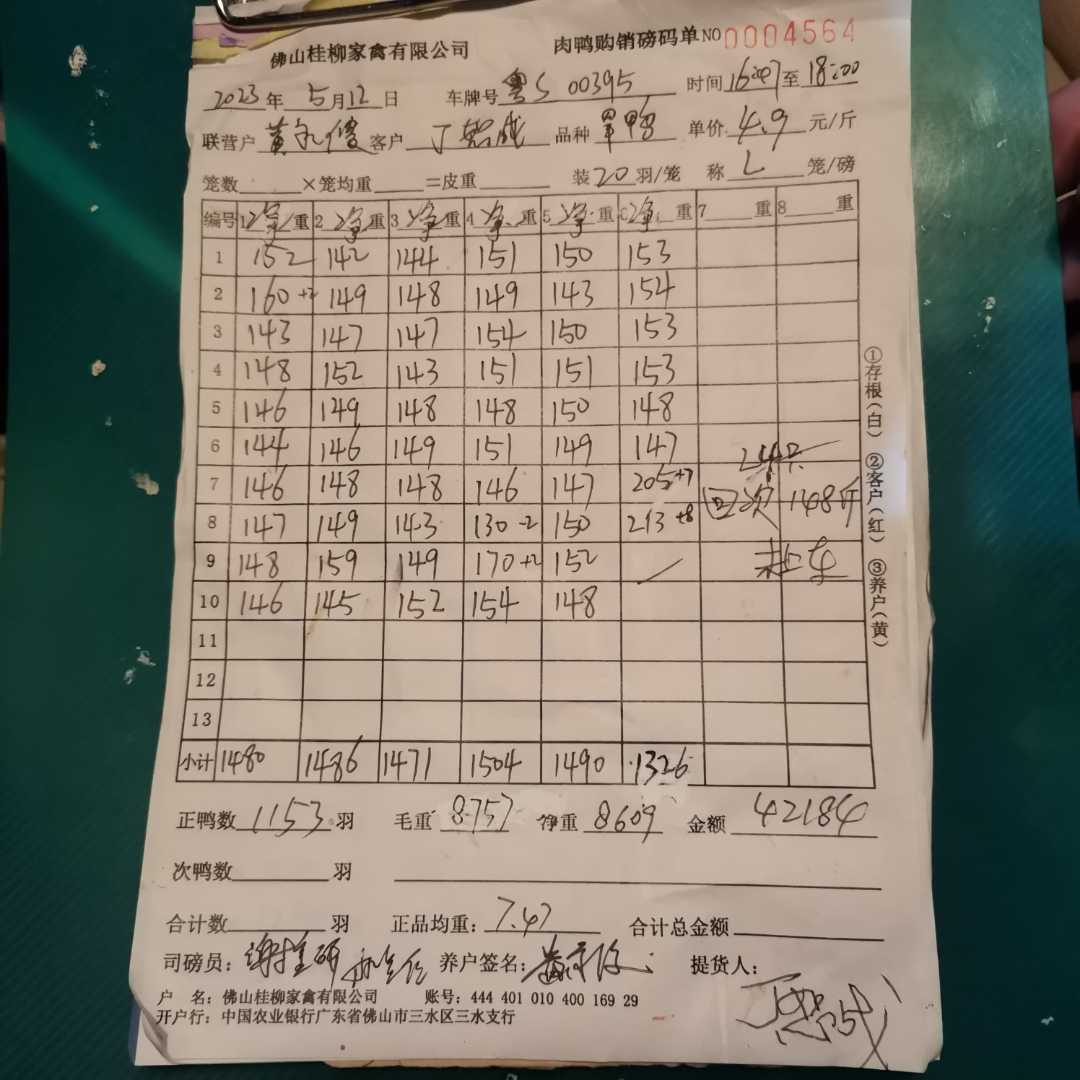 佛山桂柳家禽有限公司 肉鸭购销磅码单 NO 0004564
2023年 5月12日 车牌号 粤S 00395 时间 16:07至 18:00
联营户 黄 客户 丁 成 品种 单价 4.9 元/斤
笼数 ×笼均重 =皮重 装20羽/笼 称 L 笼/磅
编号 1净重 2净重 3净重 4净重 5净重 6净重 7重 8重
1 152 142 144 151 150 153
2 160+2 149 148 149 143 154
3 143 147 147 154 150 153
4 148 152 143 151 151 153
5 146 149 148 148 150 148
6 144 146 149 151 149 147
7 146 148 148 146 147 205+7 次 148斤
8 147 149 143 130-2 150 213+8
9 148 159 149 170+2 152
10 146 145 152 154 148
11
12
13
小计 1480 1486 1471 1504 1490 1326
①存根(白) ②客户(红) ③养户(黄)
正鸭数 1153 羽 毛重 8757 净重 8609 金额 42184
次鸭数 羽
合计数 羽 正品均重: 7.47 合计总金额
司磅员: 谢 养户签名: 黄 提货人:
丁 成
户 名: 佛山桂柳家禽有限公司 账号: 444 401 010 400 169 29
开户行: 中国农业银行广东省佛山市三水区三水支行